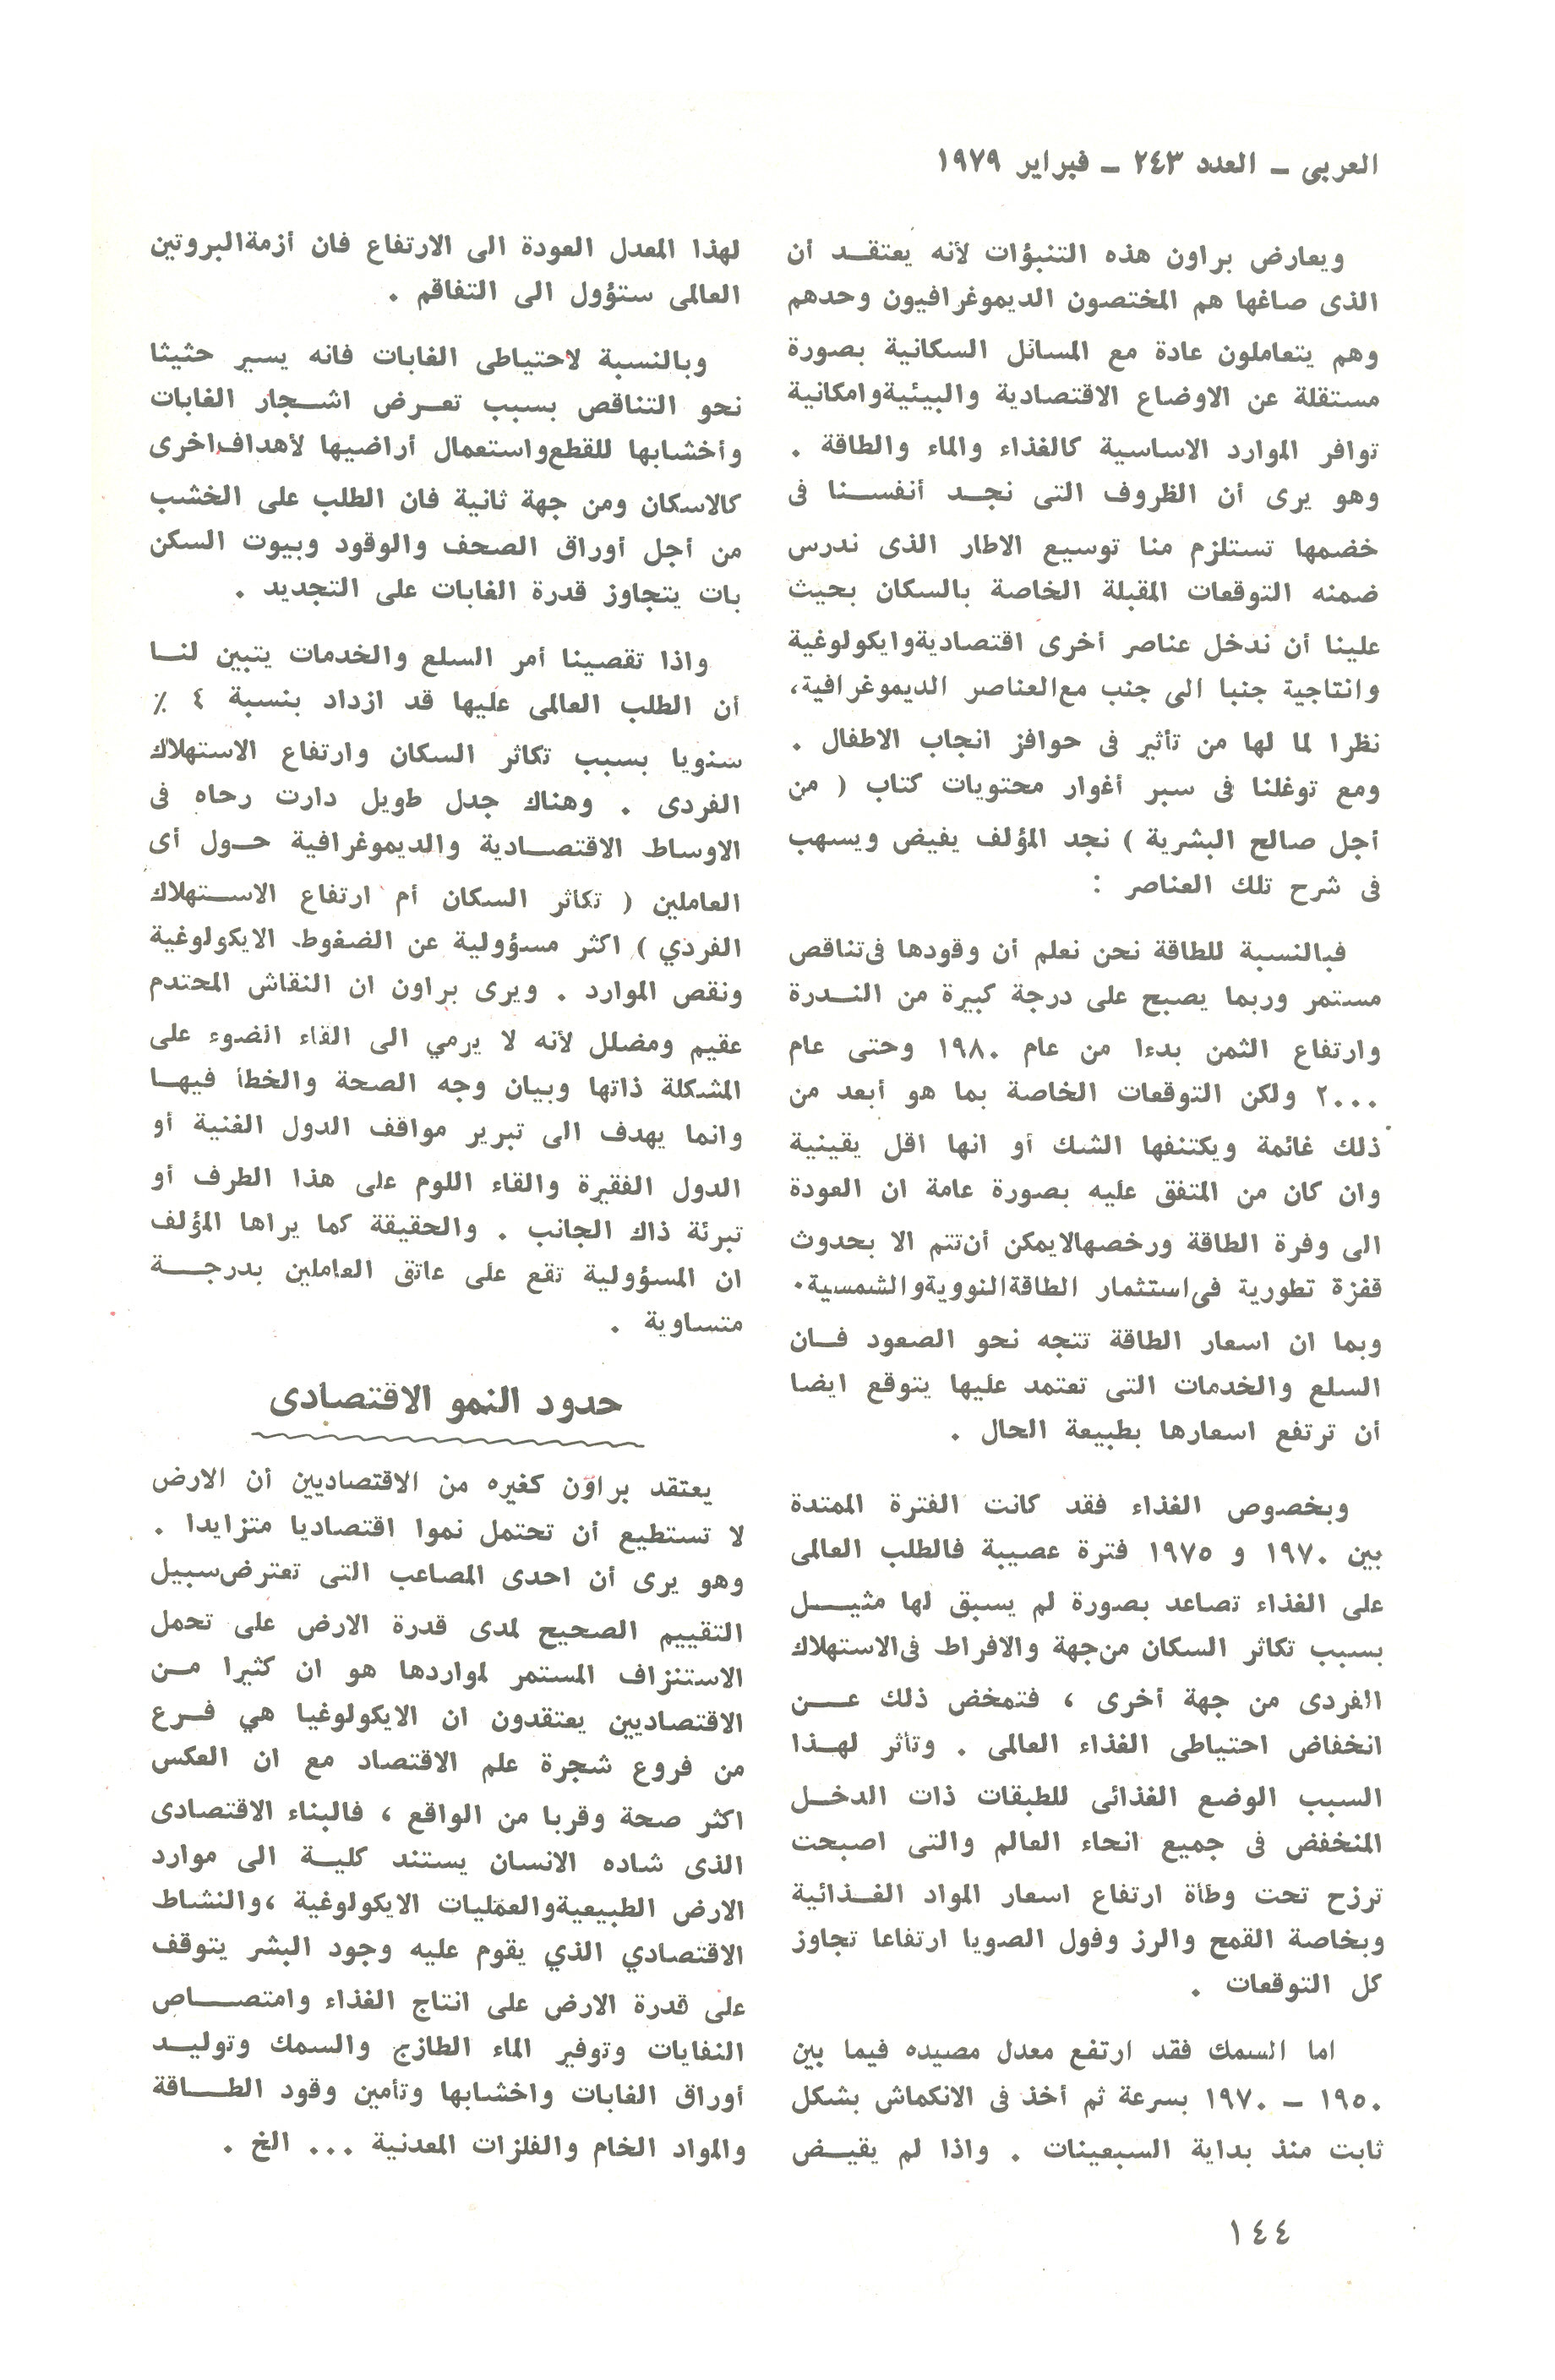 العربى ـ العدد ٢٤٣ ـ فبراير ١٩٧٩
ويعارض براون هذه التنبؤات لأنه يعتقد أن
الذى صاغها هم المختصون الديموغرافيون وحدهم
وهم يتعاملون عادة مع المسائل السكانية بصورة
مستقلة عن الاوضاع الاقتصادية والبيئية وامكانية
توافر الموارد الاساسية كالغذاء والماء والطاقة .
وهو يرى أن الظروف التى نجد أنفسنا فى
خضمها تستلزم منا توسيع الاطار الذى ندرس
ضمنه التوقعات المقبلة الخاصة بالسكان بحيث
علينا أن ندخل عناصر أخرى اقتصادية وايكولوغية
وانتاجية جنبا الى جنب مع العناصر الديموغرافية،
نظرا لما لها من تأثير فى حوافز انجاب الاطفال .
ومع توغلنا فى سبر أغوار محتويات كتاب ( من
أجل صالح البشرية ) نجد المؤلف يفيض ويسهب
فى شرح تلك العناصر :
فبالنسبة للطاقة نحن نعلم أن وقودها فى تناقص
مستمر وربما يصبح على درجة كبيرة من الندرة
وارتفاع الثمن بدءا من عام ١٩٨٠ وحتى عام
٢٠٠٠ ولكن التوقعات الخاصة بما هو أبعد من
ذلك غائمة ويكتنفها الشك أو انها اقل يقينية
وان كان من المتفق عليه بصورة عامة ان العودة
الى وفرة الطاقة ورخصها لايمكن أن تتم الا بحدوث
قفزة تطورية فى استثمار الطاقة النووية والشمسية .
وبما ان اسعار الطاقة تتجه نحو الصعود فان
السلع والخدمات التى تعتمد عليها يتوقع ايضا
أن ترتفع اسعارها بطبيعة الحال .
وبخصوص الغذاء فقد كانت الفترة الممتدة
بين ١٩٧٠ و ١٩٧٥ فترة عصيبة فالطلب العالمى
على الغذاء تصاعد بصورة لم يسبق لها مثيل
بسبب تكاثر السكان من جهة والافراط فى الاستهلاك
الفردى من جهة أخرى ، فتمخض ذلك عن
انخفاض احتياطى الغذاء العالمى . وتأثر لهذا
السبب الوضع الغذائى للطبقات ذات الدخل
المنخفض فى جميع انحاء العالم والتى اصبحت
ترزح تحت وطأة ارتفاع اسعار المواد الغذائية
وبخاصة القمح والرز وفول الصويا ارتفاعا تجاوز
كل التوقعات .
اما السمك فقد ارتفع معدل مصيده فيما بين
١٩٥٠ ـ ١٩٧٠ بسرعة ثم أخذ فى الانكماش بشكل
ثابت منذ بداية السبعينات . واذا لم يقيض
لهذا المعدل العودة الى الارتفاع فان أزمة البروتين
العالمى ستؤول الى التفاقم .
وبالنسبة لاحتياطى الغابات فانه يسير حثيثا
نحو التناقص بسبب تعرض اشجار الغابات
وأخشابها للقطع واستعمال أراضيها لأهداف اخرى
كالاسكان ومن جهة ثانية فان الطلب على الخشب
من أجل أوراق الصحف والوقود وبيوت السكن
بات يتجاوز قدرة الغابات على التجديد .
واذا تقصينا أمر السلع والخدمات يتبين لنا
أن الطلب العالمى عليها قد ازداد بنسبة ٤ ٪
سنويا بسبب تكاثر السكان وارتفاع الاستهلاك
الفردى . وهناك جدل طويل دارت رحاه فى
الاوساط الاقتصادية والديموغرافية حول أى
العاملين ( تكاثر السكان أم ارتفاع الاستهلاك
الفردي ) اكثر مسؤولية عن الضغوط الايكولوغية
ونقص الموارد . ويرى براون ان النقاش المحتدم
عقيم ومضلل لأنه لا يرمي الى القاء الضوء على
المشكلة ذاتها وبيان وجه الصحة والخطأ فيها
وانما يهدف الى تبرير مواقف الدول الغنية أو
الدول الفقيرة والقاء اللوم على هذا الطرف أو
تبرئة ذاك الجانب . والحقيقة كما يراها المؤلف
ان المسؤولية تقع على عاتق العاملين بدرجة
متساوية .
حدود النمو الاقتصادى
يعتقد براون كغيره من الاقتصاديين أن الارض
لا تستطيع أن تحتمل نموا اقتصاديا متزايدا .
وهو يرى أن احدى المصاعب التى تعترض سبيل
التقييم الصحيح لمدى قدرة الارض على تحمل
الاستنزاف المستمر لمواردها هو ان كثيرا من
الاقتصاديين يعتقدون ان الايكولوغيا هي فرع
من فروع شجرة علم الاقتصاد مع ان العكس
اكثر صحة وقربا من الواقع ، فالبناء الاقتصادى
الذى شاده الانسان يستند كلية الى موارد
الارض الطبيعية والعمليات الايكولوغية ، والنشاط
الاقتصادي الذي يقوم عليه وجود البشر يتوقف
على قدرة الارض على انتاج الغذاء وامتصاص
النفايات وتوفير الماء الطازج والسمك وتوليد
أوراق الغابات واخشابها وتأمين وقود الطاقة
والمواد الخام والفلزات المعدنية ... الخ .
١٤٤